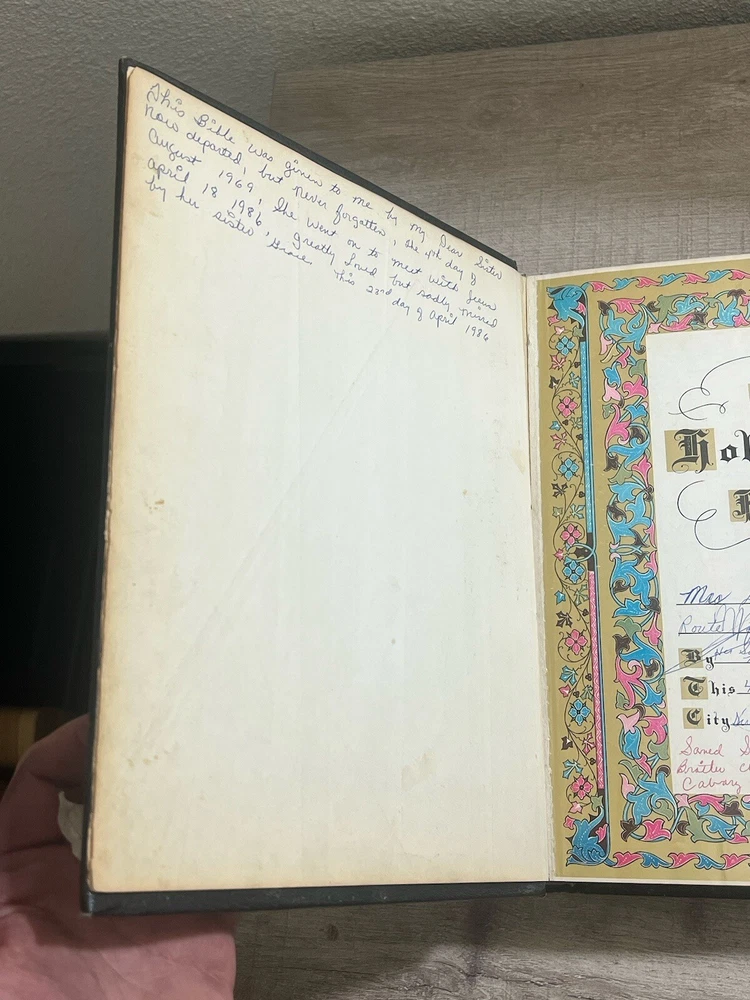 This Bible was given to me by my Dear Sister
now departed, but never forgotten, the 4th day of
August 1969, She went on to meet with Jesus
April 18 1986, greatly loved but sadly missed
by her sister, Grace. This 23rd day of April 1986
Hol
Mrs
Route
By Her
This 4
City
Saved
Brother
Calvary